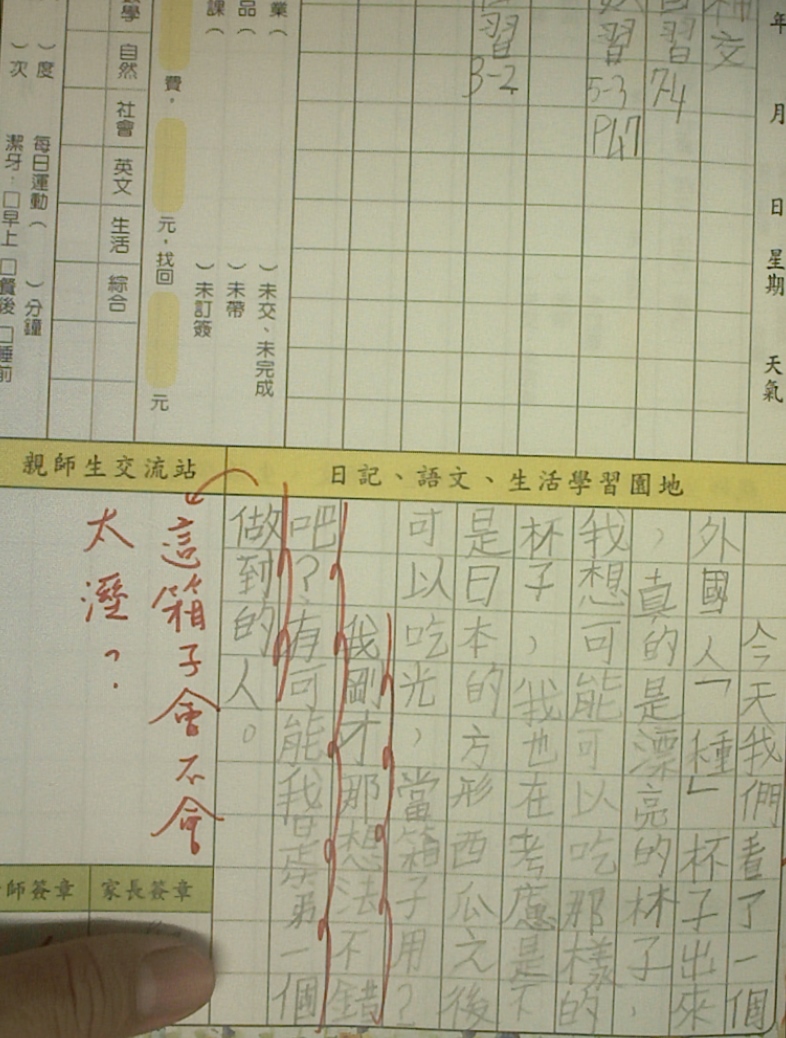 年 月 日 星期 天氣
補交
習 7-4
習 5-3 P47
習 3-2
業（ ）未交、未完成
品（ ）未帶
課（ ）未訂簽
費， 元，找回 元
學 自然 社會 英文 生活 綜合
）度 每日運動（ ）分鐘
）次 潔牙：□早上 □餐後 □睡前
日記、語文、生活學習園地
今天我們看了一個
外國人「種」杯子出來
，真的是漂亮的林子，
我想可能可以吃那樣的
杯子，我也在考慮是不
是日本的方形西瓜之後
可以吃光，當箱子用？
我剛才那想法不錯
吧？有可能我是第一個
做到的人。
親師生交流站
這箱子會不會
太溼？
師簽章 家長簽章